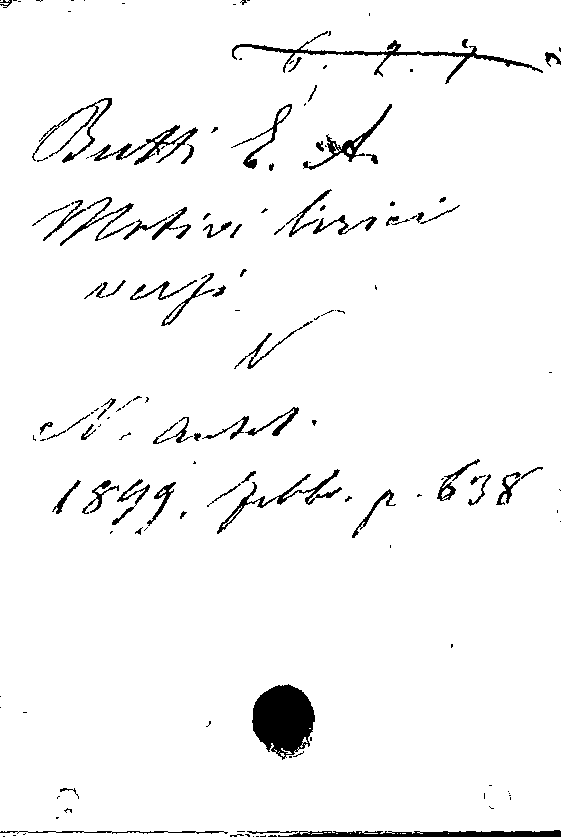 6. 2. 7.
Butti E. A.
Motivi lirici
versi
N
N. Antol.
1899. Febbr. p. 638